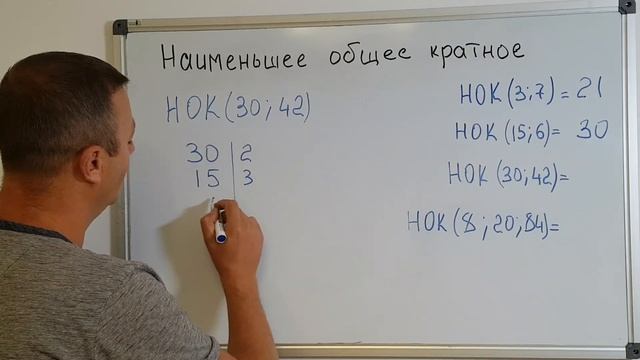 Наименьшее общее кратное
НОК(30; 42)
30 | 2
15 | 3
НОК(3;7) = 21
НОК(15;6)= 30
НОК(30;42)=
НОК(8;20;84)=